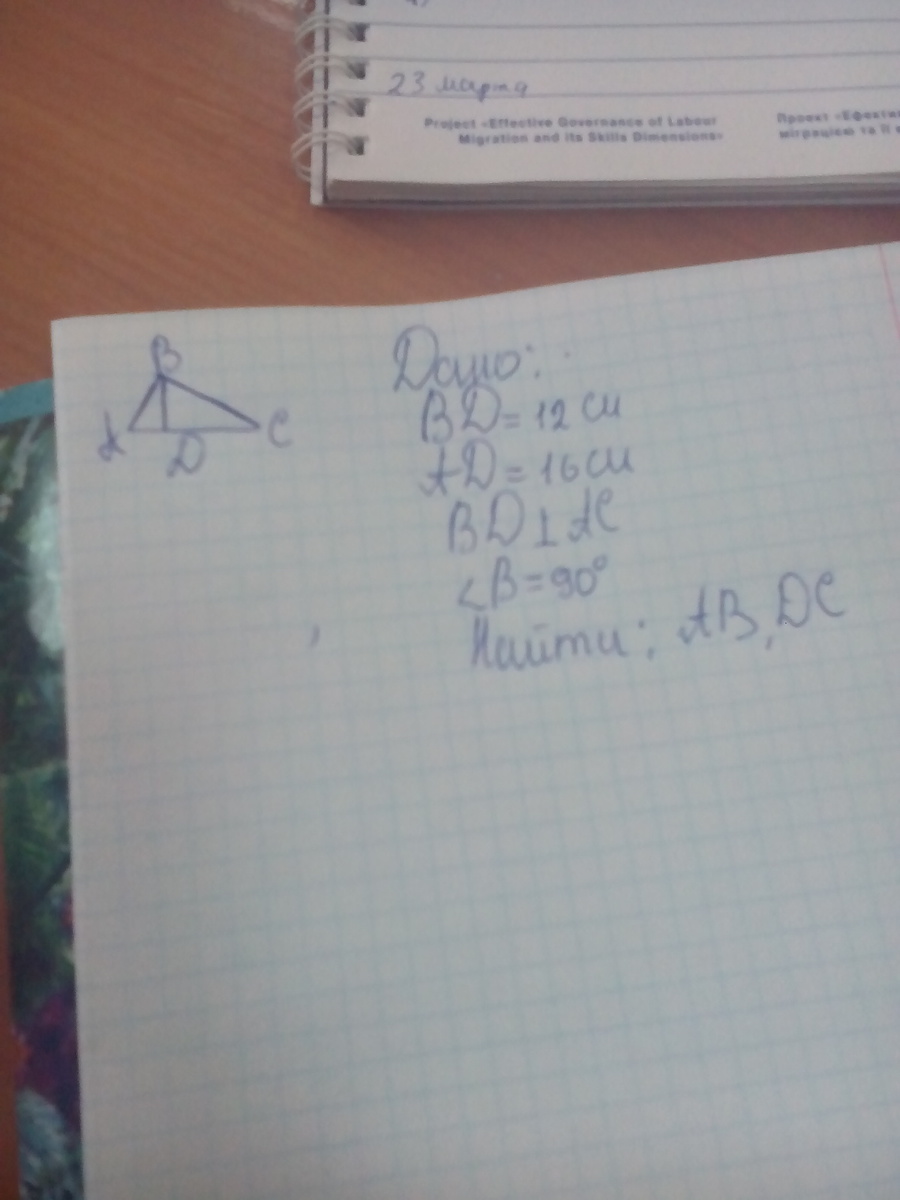 23 марта
Project «Effective Governance of Labour
Migration and its Skills Dimensions»
Проект «Ефектив
міграцією та її
B
A
D
C
Дано:
BD = 12 см
AD = 16 см
BD ⊥ AC
∠B = 90°
Найти: AB, DC